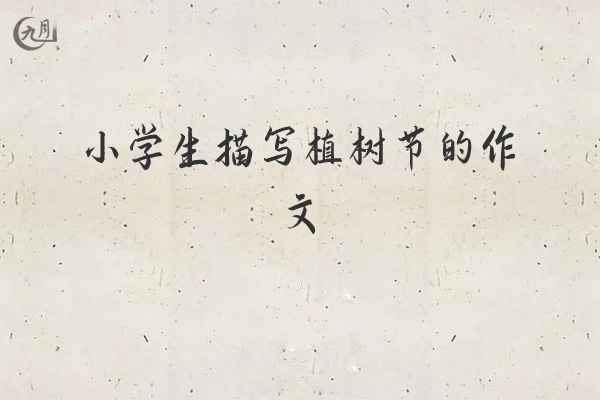 九月
小学生描写植树节的作
文